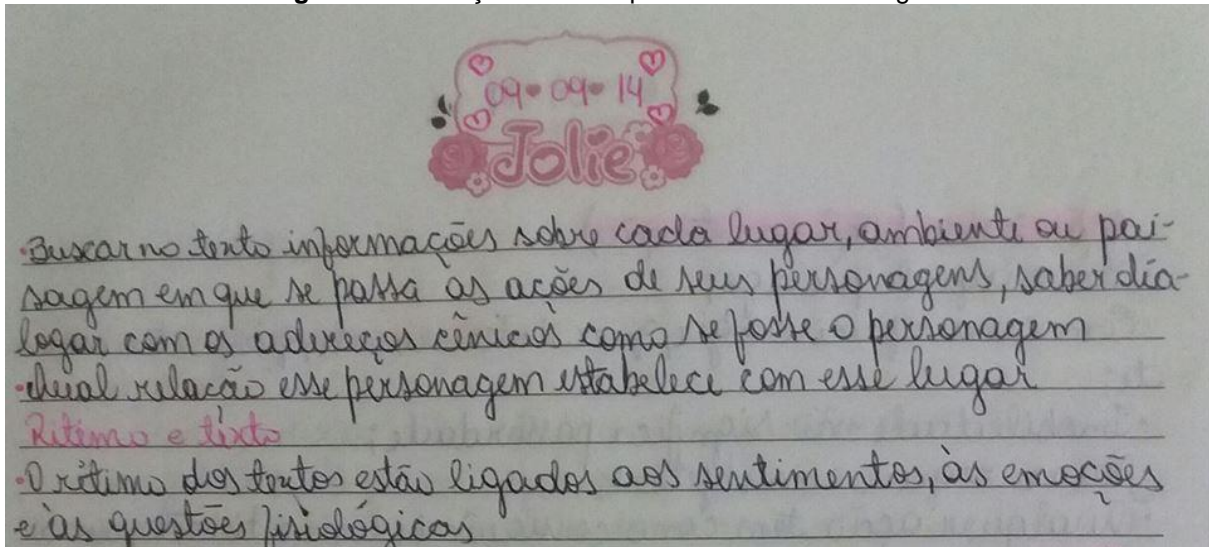 09 • 09 • 14
Jolie
• Buscar no texto informações sobre cada lugar, ambiente ou pai-
sagem em que se passa às ações de seus personagens, saber dia-
logar com os adereços cênicos como se fosse o personagem
• Qual relação esse personagem estabelece com esse lugar
Ritimo e texto
• O ritimo dos textos estão ligados aos sentimentos, às emoções
e às questões fisiológicas